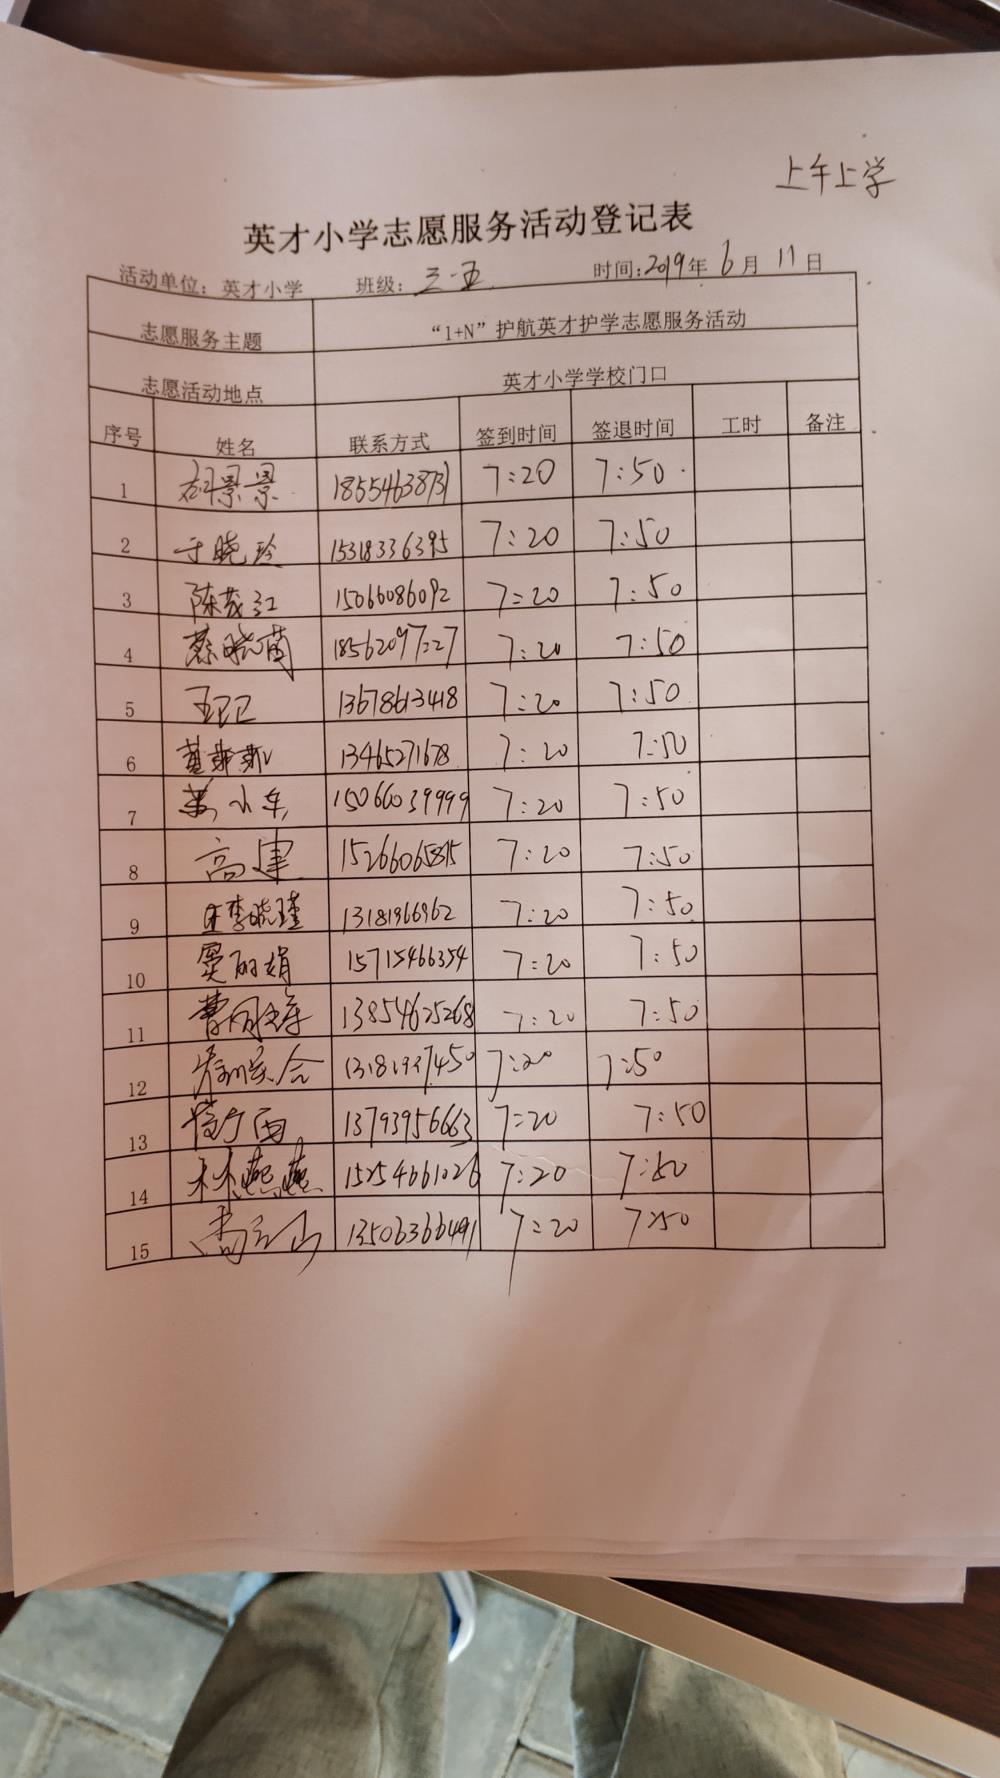 上午上学
英才小学志愿服务活动登记表
活动单位：英才小学 班级：三.五 时间：2019年6月11日
志愿服务主题 “1+N”护航英才护学志愿服务活动
志愿活动地点 英才小学学校门口
序号 姓名 联系方式 签到时间 签退时间 工时 备注
1 景景 18554638731 7:20 7:50
2 于晓玲 15318336395 7:20 7:50
3 陈茂江 15066086092 7:20 7:50
4 蔡晓菌 18562097227 7:20 7:50
5 13678613418 7:20 7:50
6 13465271678 7:20 7:50
7 小车 15066039999 7:20 7:50
8 高建 15266065815 7:20 7:50
9 李晓瑾 13181966962 7:20 7:50
10 窦丽娟 15715466354 7:20 7:50
11 曹 13854625268 7:20 7:50
12 13181937450 7:20 7:50
13 13793956663 7:20 7:50
14 林燕燕 15254661026 7:20 7:50
15 13506366491 7:20 7:50